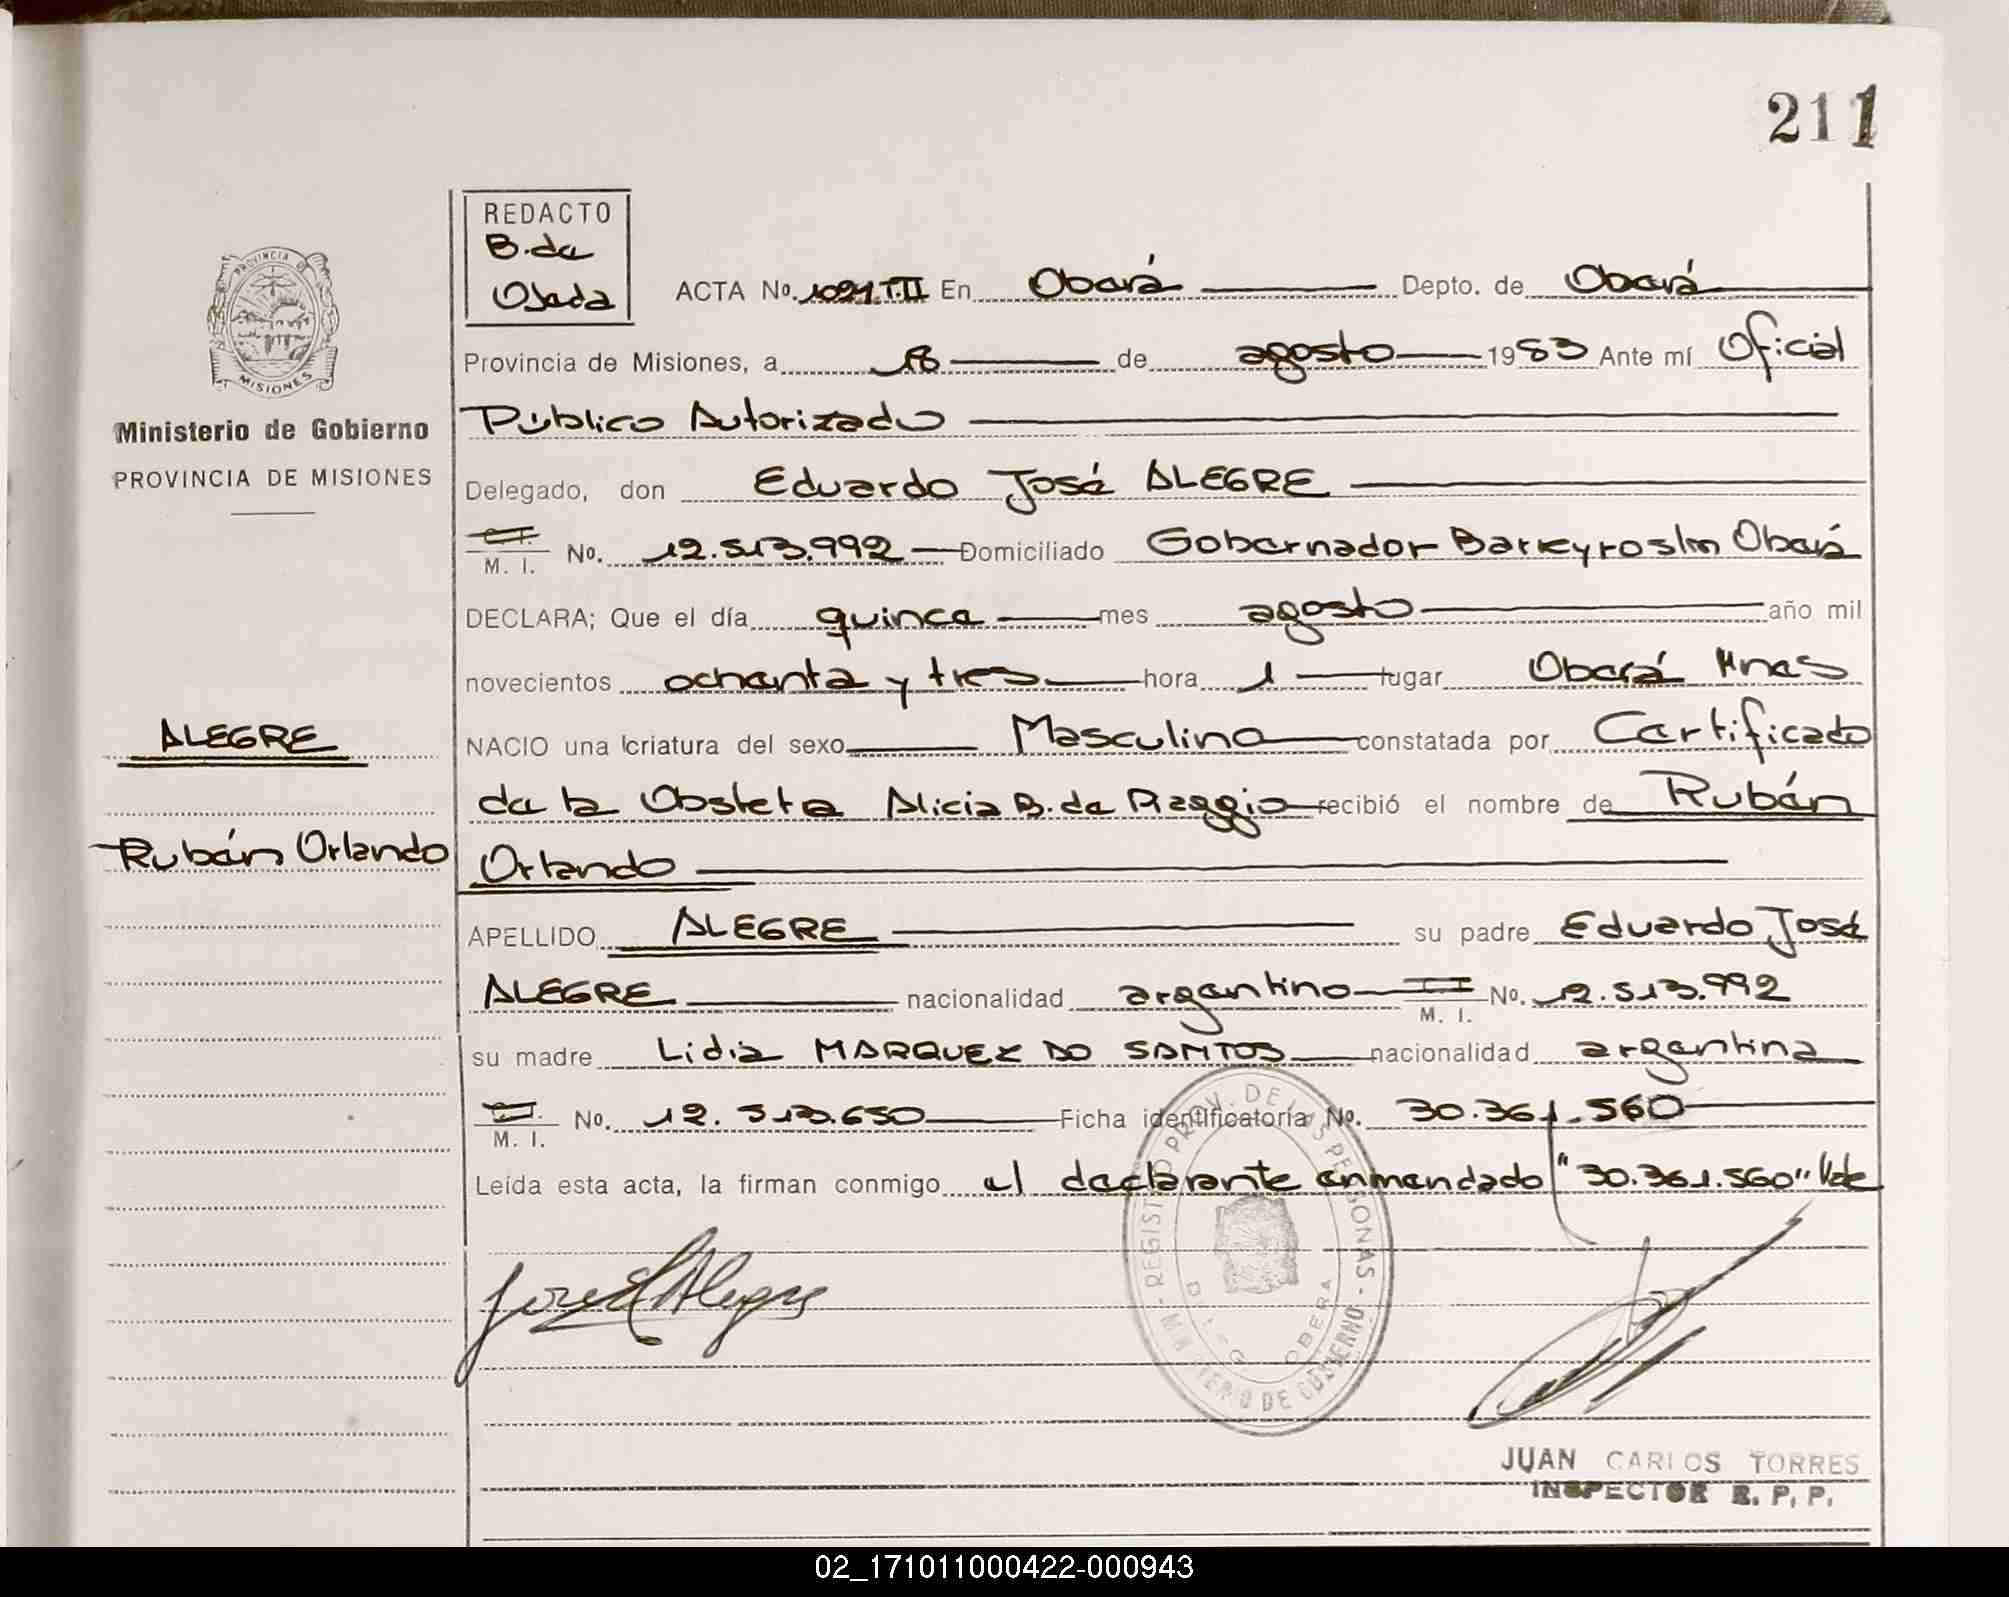 211
REDACTO
B. de
Ojeda
ACTA No. 1091 T.II En Oberá Depto. de Oberá
Provincia de Misiones, a 18 de agosto 1983 Ante mí Oficial
Público Autorizado
Delegado, don Eduardo José ALEGRE
C.I.
M. I. No. 12.513.992 Domiciliado Gobernador Barreyro s/n Oberá
DECLARA; Que el día quince mes agosto año mil
novecientos ochenta y tres hora 1 lugar Oberá Mnes
NACIO una criatura del sexo Masculino constatada por Certificado
de la Obstetra Alicia B. de recibió el nombre de Rubén
Orlando
APELLIDO ALEGRE su padre Eduardo José
ALEGRE nacionalidad argentino M. I. No. 12.513.992
su madre Lidia MARQUEZ DO SANTOS nacionalidad argentina
M. I. No. 12.513.650 Ficha identificatoria No. 30.361.560
Leída esta acta, la firman conmigo el declarante enmendado "30.361.560" Vale
PROVINCIA DE
MISIONES
Ministerio de Gobierno
PROVINCIA DE MISIONES
ALEGRE
Rubén Orlando
José E Alegre
REGISTRO PROV. DE LAS PERSONAS - MINISTERIO DE GOBIERNO
DELEG. OBERA
JUAN CARLOS TORRES
INSPECTOR R. P. P.
02_171011000422-000943